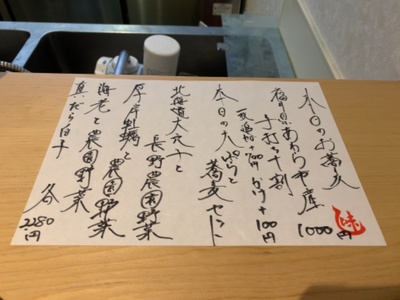 本日のお蕎麦
福井県あわら市産 1000円
手打ち十割
一枚追加+700円 かけ+100円
本日の天ぷらと蕎麦セット
北海道大穴子と
長野農園野菜
厚岸牡蠣と農園野菜
海老と農園野菜
真だら白子
各2280円
味